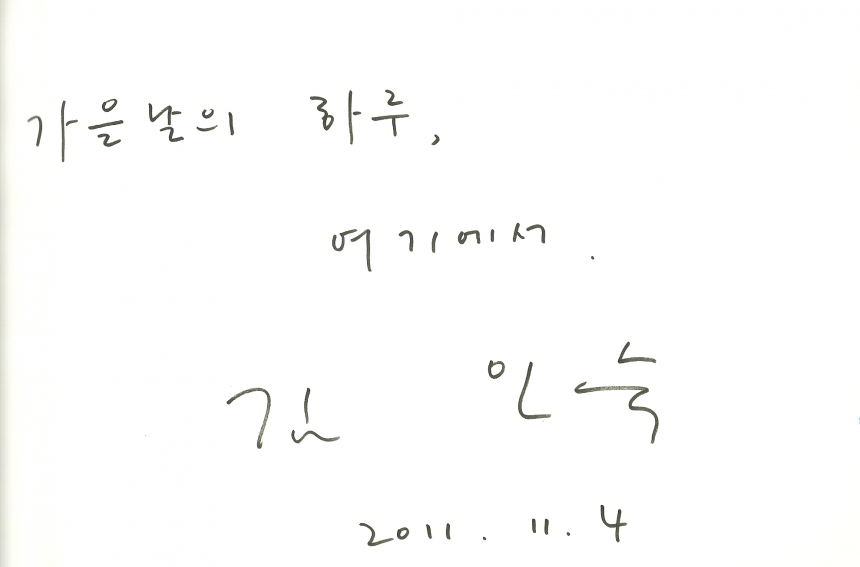 가을날의 하루,
여기에서.
김 인숙
2011. 11. 4